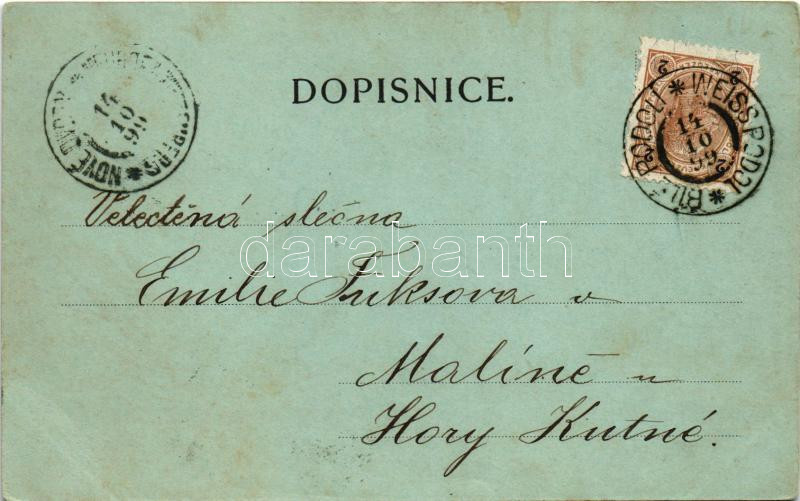 DOPISNICE.
WEISS PODOL * BÍLÉ PODOLÍ *
14
10
99
2
NOVÉ DVORY *
14
10
99
Velectěná slečna
darabanth
Emilie Fuksova v
Malíně u
Hory Kutné.